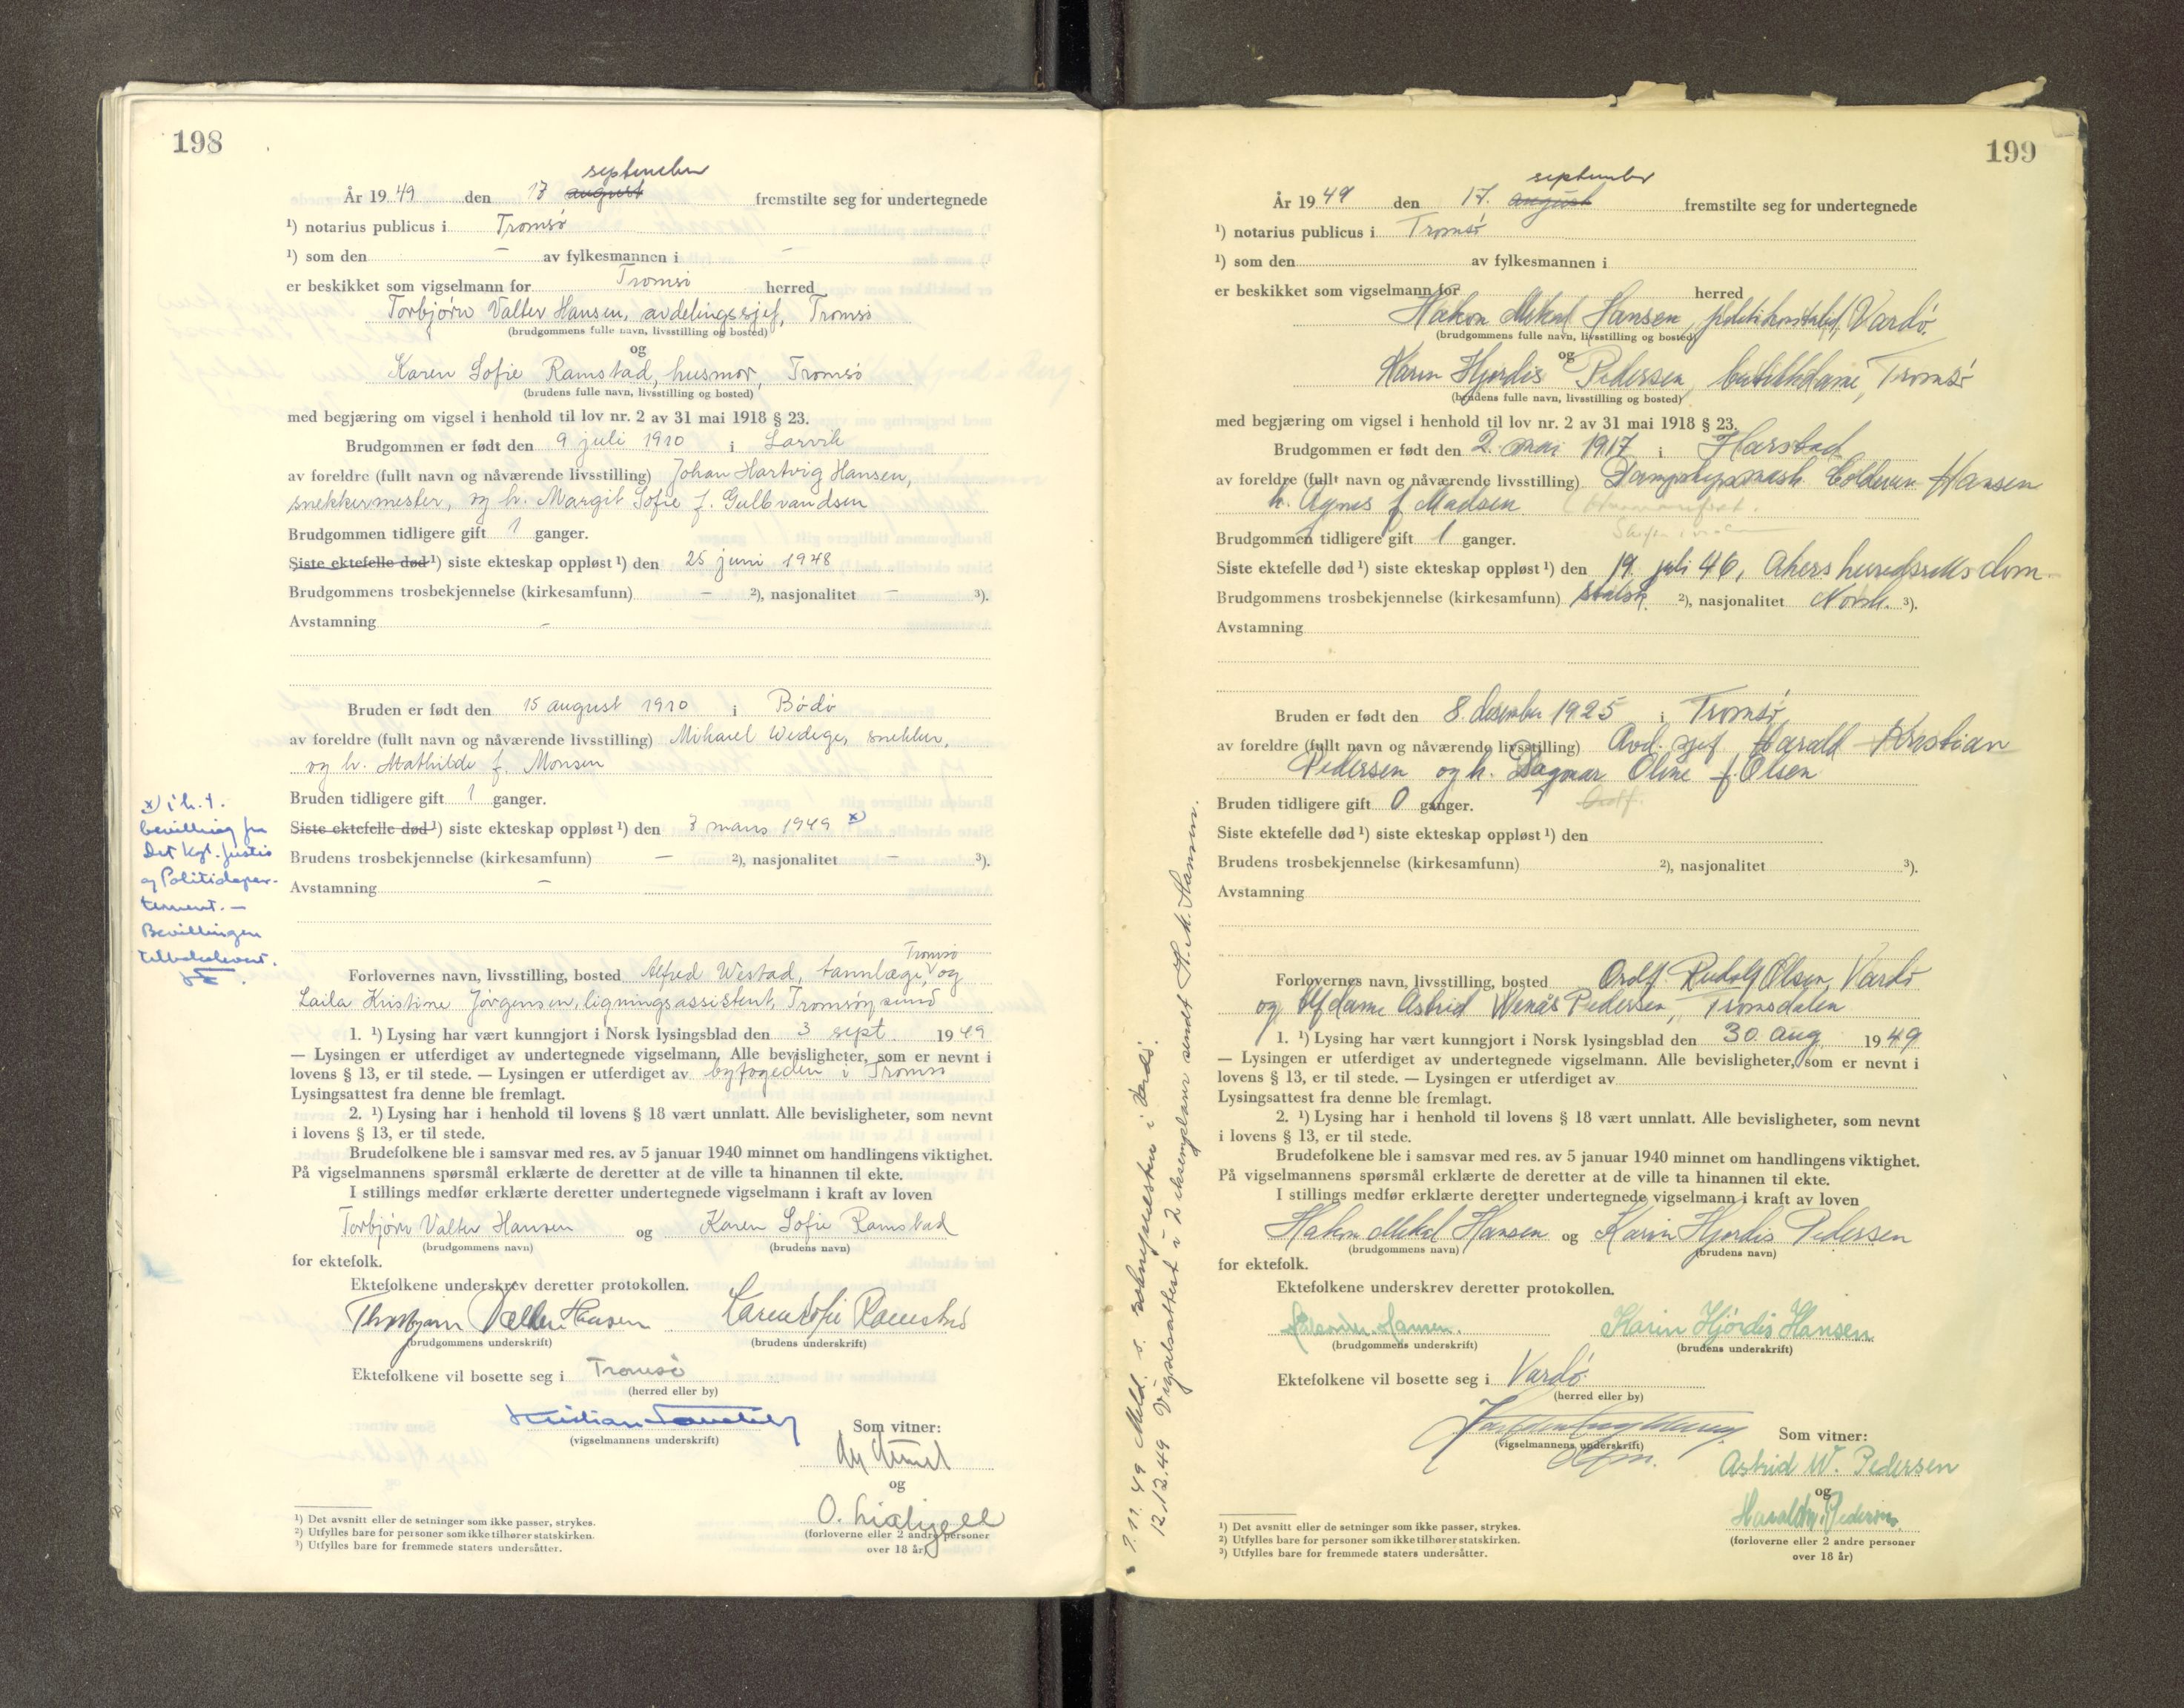 198
september
År 1949 den 17 august fremstilte seg for undertegnede
¹) notarius publicus i Tromsö
¹) som den — av fylkesmannen i
er beskikket som vigselmann for Tromsö herred
Torbjörn Valter Hansen, avdelingssjef, Tromsö
(brudgommens fulle navn, livsstilling og bosted)
og
Karen Sofie Ramstad, husmor, Tromsö
(brudens fulle navn, livsstilling og bosted)
med begjæring om vigsel i henhold til lov nr. 2 av 31 mai 1918 § 23.
Brudgommen er født den 9 juli 1910 i Larvik
av foreldre (fullt navn og nåværende livsstilling) Johan Hartvig Hansen,
snekkermester, og h. Margit Sofie f. Gulbrandsen
Brudgommen tidligere gift 1 ganger.
Siste ektefelle død ¹) siste ekteskap oppløst ¹) den 25 juni 1948
Brudgommens trosbekjennelse (kirkesamfunn) — ²), nasjonalitet — ³).
Avstamning —
Bruden er født den 15 august 1910 i Bodö
av foreldre (fullt navn og nåværende livsstilling) Mikael Wedege, snekker,
og h. Mathilde f. Monsen
Bruden tidligere gift 1 ganger.
Siste ektefelle død ¹) siste ekteskap oppløst ¹) den 7 mars 1949 x)
Brudens trosbekjennelse (kirkesamfunn) — ²), nasjonalitet — ³).
Avstamning —
x) i h. t.
bevilling fra
Det Kgl. Justis
og Politidepar-
tement. —
Bevillingen
tilbakelevert.
Tromsö
Forlovernes navn, livsstilling, bosted Alfred Westad, tannlæge, og
Laila Kristine Jörgensen, ligningsassistent, Tromsöysund
1. ¹) Lysing har vært kunngjort i Norsk lysingsblad den 3 sept. 1949
— Lysingen er utferdiget av undertegnede vigselmann. Alle bevisligheter, som er nevnt i
lovens § 13, er til stede. — Lysingen er utferdiget av byfogeden i Tromsö
Lysingsattest fra denne ble fremlagt.
2. ¹) Lysing har i henhold til lovens § 18 vært unnlatt. Alle bevisligheter, som nevnt
i lovens § 13, er til stede.
Brudefolkene ble i samsvar med res. av 5 januar 1940 minnet om handlingens viktighet.
På vigselmannens spørsmål erklærte de deretter at de ville ta hinannen til ekte.
I stillings medfør erklærte deretter undertegnede vigselmann i kraft av loven
Torbjörn Valter Hansen og Karen Sofie Ramstad
(brudgommens navn) (brudens navn)
for ektefolk.
Ektefolkene underskrev deretter protokollen.
Thorbjørn Valter Hansen Karen Sofie Ramstad
(brudgommens underskrift) (brudens underskrift)
Ektefolkene vil bosette seg i Tromsö
(herred eller by)
Kristian
(vigselmannens underskrift)
Som vitner:
og
O.
(forloverne eller 2 andre personer
over 18 år)
¹) Det avsnitt eller de setninger som ikke passer, strykes.
²) Utfylles bare for personer som ikke tilhører statskirken.
³) Utfylles bare for fremmede staters undersåtter.
199
september
År 1949 den 17. august fremstilte seg for undertegnede
¹) notarius publicus i Tromsö
¹) som den av fylkesmannen i
er beskikket som vigselmann for herred
Håkon Mikal Hansen, politikonstabel, Vardö.
(brudgommens fulle navn, livsstilling og bosted)
og
Karin Hjördis Pedersen, butikkdame, Tromsö
(brudens fulle navn, livsstilling og bosted)
med begjæring om vigsel i henhold til lov nr. 2 av 31 mai 1918 § 23.
Brudgommen er født den 2. mai 1917 i Harstad
av foreldre (fullt navn og nåværende livsstilling) Hansen
h. Agnes f Madsen
Brudgommen tidligere gift 1 ganger.
Siste ektefelle død ¹) siste ekteskap oppløst ¹) den 19. juli 46, Akers herredsretts dom.
Brudgommens trosbekjennelse (kirkesamfunn) statsk. ²), nasjonalitet Norsk. ³).
Avstamning
Bruden er født den 8. desember 1925 i Tromsö
av foreldre (fullt navn og nåværende livsstilling) Avd. sjef Harald Kristian
Pedersen og h. Dagmar Oline f. Olsen
Bruden tidligere gift 0 ganger.
Siste ektefelle død ¹) siste ekteskap oppløst ¹) den
Brudens trosbekjennelse (kirkesamfunn) ²), nasjonalitet ³).
Avstamning
Forlovernes navn, livsstilling, bosted Ordf. Rudolf Olsen, Vardö
og Astrid Wenås Pedersen, Tromsdalen
1. ¹) Lysing har vært kunngjort i Norsk lysingsblad den 30. aug. 1949
— Lysingen er utferdiget av undertegnede vigselmann. Alle bevisligheter, som er nevnt i
lovens § 13, er til stede. — Lysingen er utferdiget av
Lysingsattest fra denne ble fremlagt.
2. ¹) Lysing har i henhold til lovens § 18 vært unnlatt. Alle bevisligheter, som nevnt
i lovens § 13, er til stede.
Brudefolkene ble i samsvar med res. av 5 januar 1940 minnet om handlingens viktighet.
På vigselmannens spørsmål erklærte de deretter at de ville ta hinannen til ekte.
I stillings medfør erklærte deretter undertegnede vigselmann i kraft av loven
Håkon Mikal Hansen og Karin Hjördis Pedersen
(brudgommens navn) (brudens navn)
for ektefolk.
Ektefolkene underskrev deretter protokollen.
Hansen. Karin Hjördis Hansen
(brudgommens underskrift) (brudens underskrift)
Ektefolkene vil bosette seg i Vardö
(herred eller by)
(vigselmannens underskrift)
Som vitner:
Astrid W. Pedersen
og
Harald Kr. Pedersen
(forloverne eller 2 andre personer
over 18 år)
¹) Det avsnitt eller de setninger som ikke passer, strykes.
²) Utfylles bare for personer som ikke tilhører statskirken.
³) Utfylles bare for fremmede staters undersåtter.
7.11.49 Meld. s. soknepresten i Vardö.
12.12.49 Vigselsattest i 2 eksemplarer sendt H. M. Hansen.